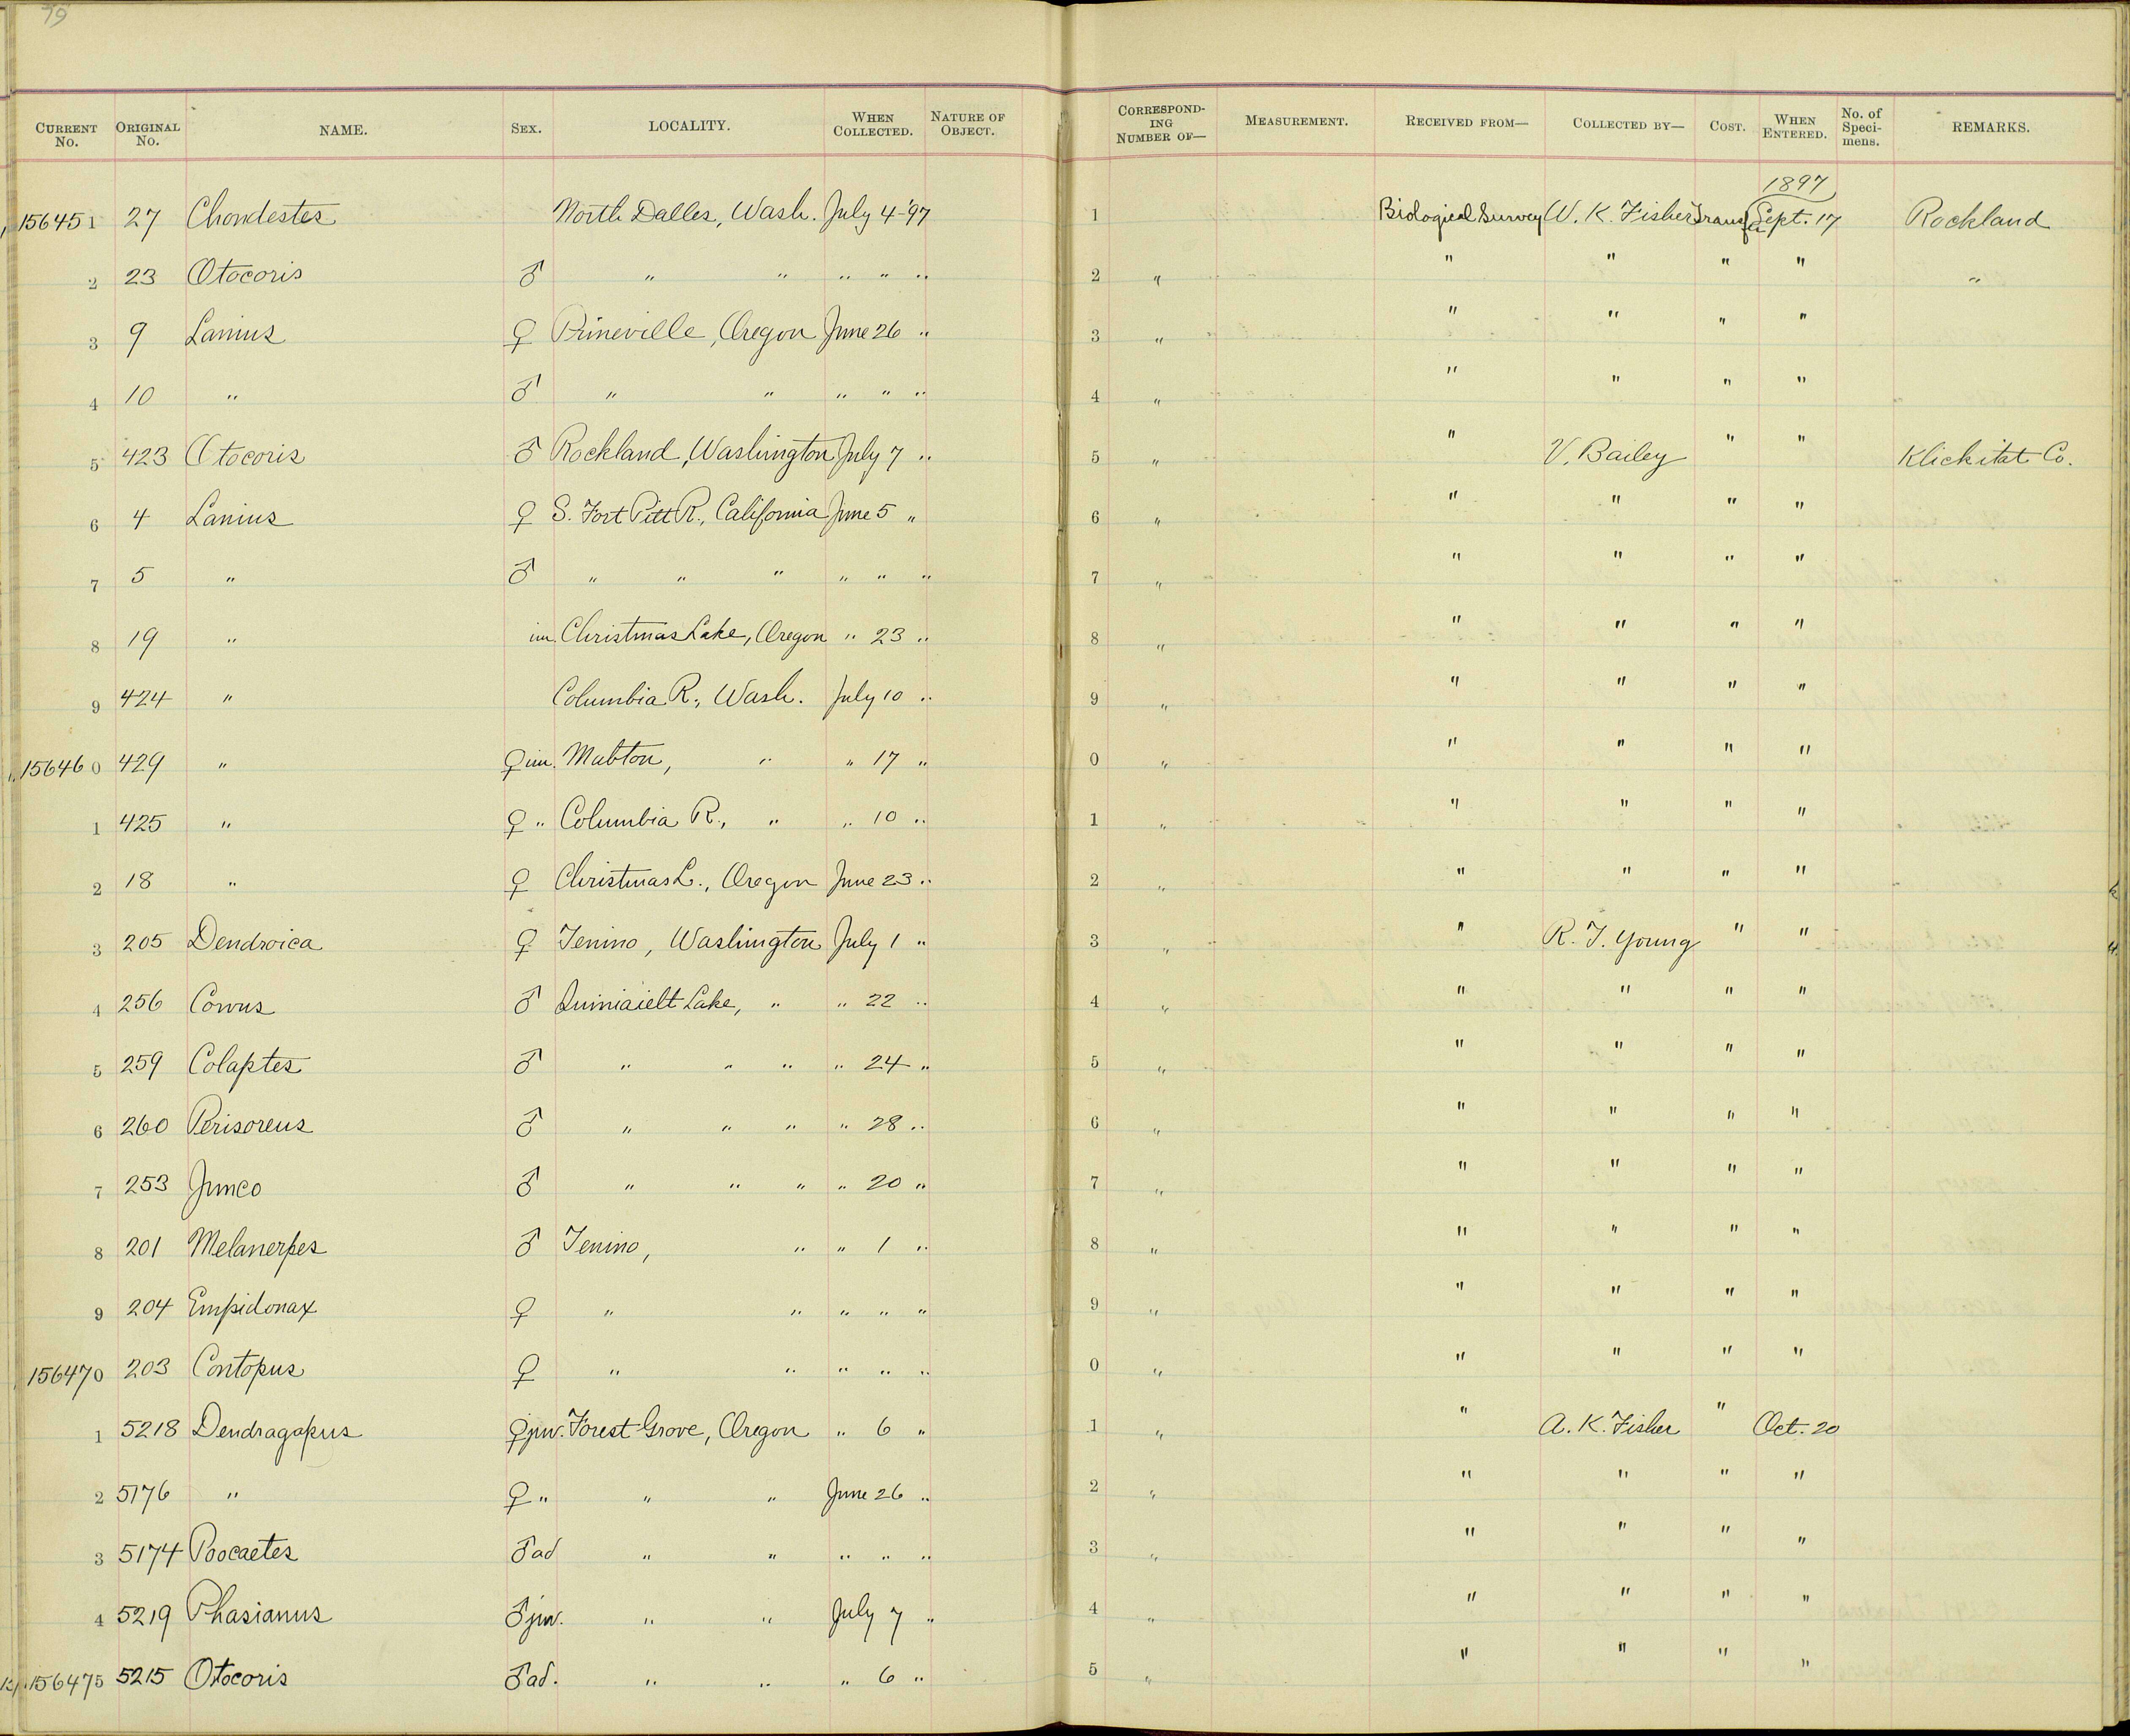 79
CURRENT No. ORIGINAL No. NAME. SEX. LOCALITY. WHEN COLLECTED. NATURE OF OBJECT. CORRESPONDING NUMBER OF— MEASUREMENT. RECEIVED FROM— COLLECTED BY— COST. WHEN ENTERED. No. of Specimens. REMARKS.
1897
156451 27 Chondestes North Dalles, Wash. July 4-'97 1 Biological Survey W. K. Fisher Transf. Sept. 17 Rockland
2 23 Otocoris ♂ " " " " " 2 " " " " " "
3 9 Lanius ♀ Prineville, Oregon June 26 " 3 " " " " "
4 10 " ♂ " " " " " 4 " " " " "
5 423 Otocoris ♂ Rockland, Washington July 7 " 5 " " V. Bailey " " Klickitat Co.
6 4 Lanius ♀ S. Fort Pitt R., California June 5 " 6 " " " " "
7 5 " ♂ " " " " " " 7 " " " " "
8 19 " im. Christmas Lake, Oregon " 23 " 8 " " " " "
9 424 " Columbia R., Wash. July 10 " 9 " " " " "
156460 429 " ♀ im. Mabton, " " 17 " 0 " " " " "
1 425 " ♀ " Columbia R., " " 10 " 1 " " " " "
2 18 " ♀ Christmas L., Oregon June 23 " 2 " " " " "
3 205 Dendroica ♀ Tenino, Washington July 1 " 3 " " R. T. Young " "
4 256 Corvus ♂ Quiniaielt Lake, " " 22 " 4 " " " " "
5 259 Colaptes ♂ " " " " 24 " 5 " " " " "
6 260 Perisoreus ♂ " " " " 28 " 6 " " " " "
7 253 Junco ♂ " " " " 20 " 7 " " " " "
8 201 Melanerpes ♂ Tenino, " " 1 " 8 " " " " "
9 204 Empidonax ♀ " " " " " 9 " " " " "
156470 203 Contopus ♀ " " " " " 0 " " " " "
1 5218 Dendragapus ♀ juv. Forest Grove, Oregon " 6 " 1 " " A. K. Fisher " Oct. 20
2 5176 " ♀ " " " June 26 " 2 " " " " "
3 5174 Poocaetes ♂ ad " " " " " 3 " " " " "
4 5219 Phasianus ♂ juv. " " July 7 " 4 " " " " "
156475 5215 Otocoris ♂ ad. " " " 6 " 5 " " " " "